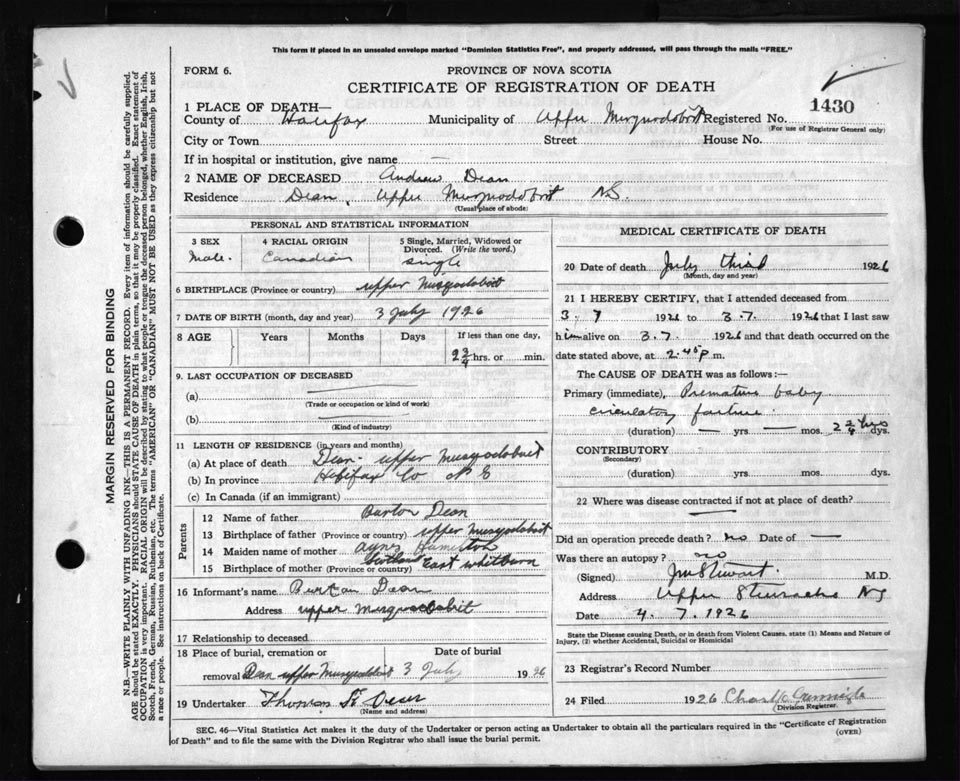 This form if placed in an unsealed envelope marked "Dominion Statistics Free", and properly addressed, will pass through the mails "FREE."
FORM 6.
PROVINCE OF NOVA SCOTIA
CERTIFICATE OF REGISTRATION OF DEATH
1430
1 PLACE OF DEATH—
County of Halifax Municipality of Upper Musquodoboit Registered No.
(For use of Registrar General only)
City or Town Street House No.
If in hospital or institution, give name —
2 NAME OF DECEASED Andrew Dean
Residence Dean, Upper Musquodoboit N.S.
(Usual place of abode)
PERSONAL AND STATISTICAL INFORMATION
3 SEX 4 RACIAL ORIGIN 5 Single, Married, Widowed or Divorced. (Write the word.)
Male. Canadian Single
6 BIRTHPLACE (Province or country) Upper Musquodoboit
7 DATE OF BIRTH (month, day and year) 3 July 1926
8 AGE Years Months Days If less than one day,
2 3/4 hrs. or min.
9. LAST OCCUPATION OF DECEASED
(a)
(Trade or occupation or kind of work)
(b)
(Kind of industry)
11 LENGTH OF RESIDENCE (in years and months)
(a) At place of death Dean - upper Musquodoboit
(b) In province Halifax Co N S
(c) In Canada (if an immigrant)
Parents
12 Name of father Burton Dean
13 Birthplace of father (Province or country) upper Musquodoboit
14 Maiden name of mother Hamilton
15 Birthplace of mother (Province or country) Scotland East Whitburn
16 Informant's name Burton Dean
Address upper Musquodoboit
17 Relationship to deceased
18 Place of burial, cremation or Date of burial
removal Dean upper Musquodoboit 3 July 1926
19 Undertaker Thomas Dean
(Name and address)
MEDICAL CERTIFICATE OF DEATH
20 Date of death July third 1926
(Month, day and year)
21 I HEREBY CERTIFY, that I attended deceased from
3. 7 1926 to 3.7. 1926 that I last saw
him alive on 3.7. 1926 and that death occurred on the
date stated above, at 2.45 p.m.
The CAUSE OF DEATH was as follows:—
Primary (immediate), Premature baby
circulatory failure.
(duration) — yrs — mos. 2 3/4 hrs dys.
CONTRIBUTORY
(Secondary)
(duration) yrs. mos. dys.
22 Where was disease contracted if not at place of death?
Did an operation precede death? no Date of —
Was there an autopsy? no
(Signed) Stewart. M.D.
Address Upper NS
Date 4. 7. 1926
State the Disease causing Death, or in death from Violent Causes, state (1) Means and Nature of Injury, (2) whether Accidental, Suicidal or Homicidal
23 Registrar's Record Number
24 Filed 1926
(Division Registrar.
SEC. 46—Vital Statistics Act makes it the duty of the Undertaker or person acting as Undertaker to obtain all the particulars required in the "Certificate of Registration
of Death" and to file the same with the Division Registrar who shall issue the burial permit.
(OVER)
MARGIN RESERVED FOR BINDING
N.B.—WRITE PLAINLY WITH UNFADING INK—THIS IS A PERMANENT RECORD. Every item of information should be carefully supplied.
AGE should be stated EXACTLY. PHYSICIANS should STATE CAUSE OF DEATH in plain terms, so that it may be properly classified. Exact statement of
OCCUPATION is very important. RACIAL ORIGIN will be described by stating to what people or tongue the deceased person belonged, whether English, Irish,
Scotch, French, German, Russian, Ruthenian, etc. The terms "AMERICAN" OR "CANADIAN" MUST NOT BE USED as they express citizenship but not
a race or people. See instructions on back of Certificate.